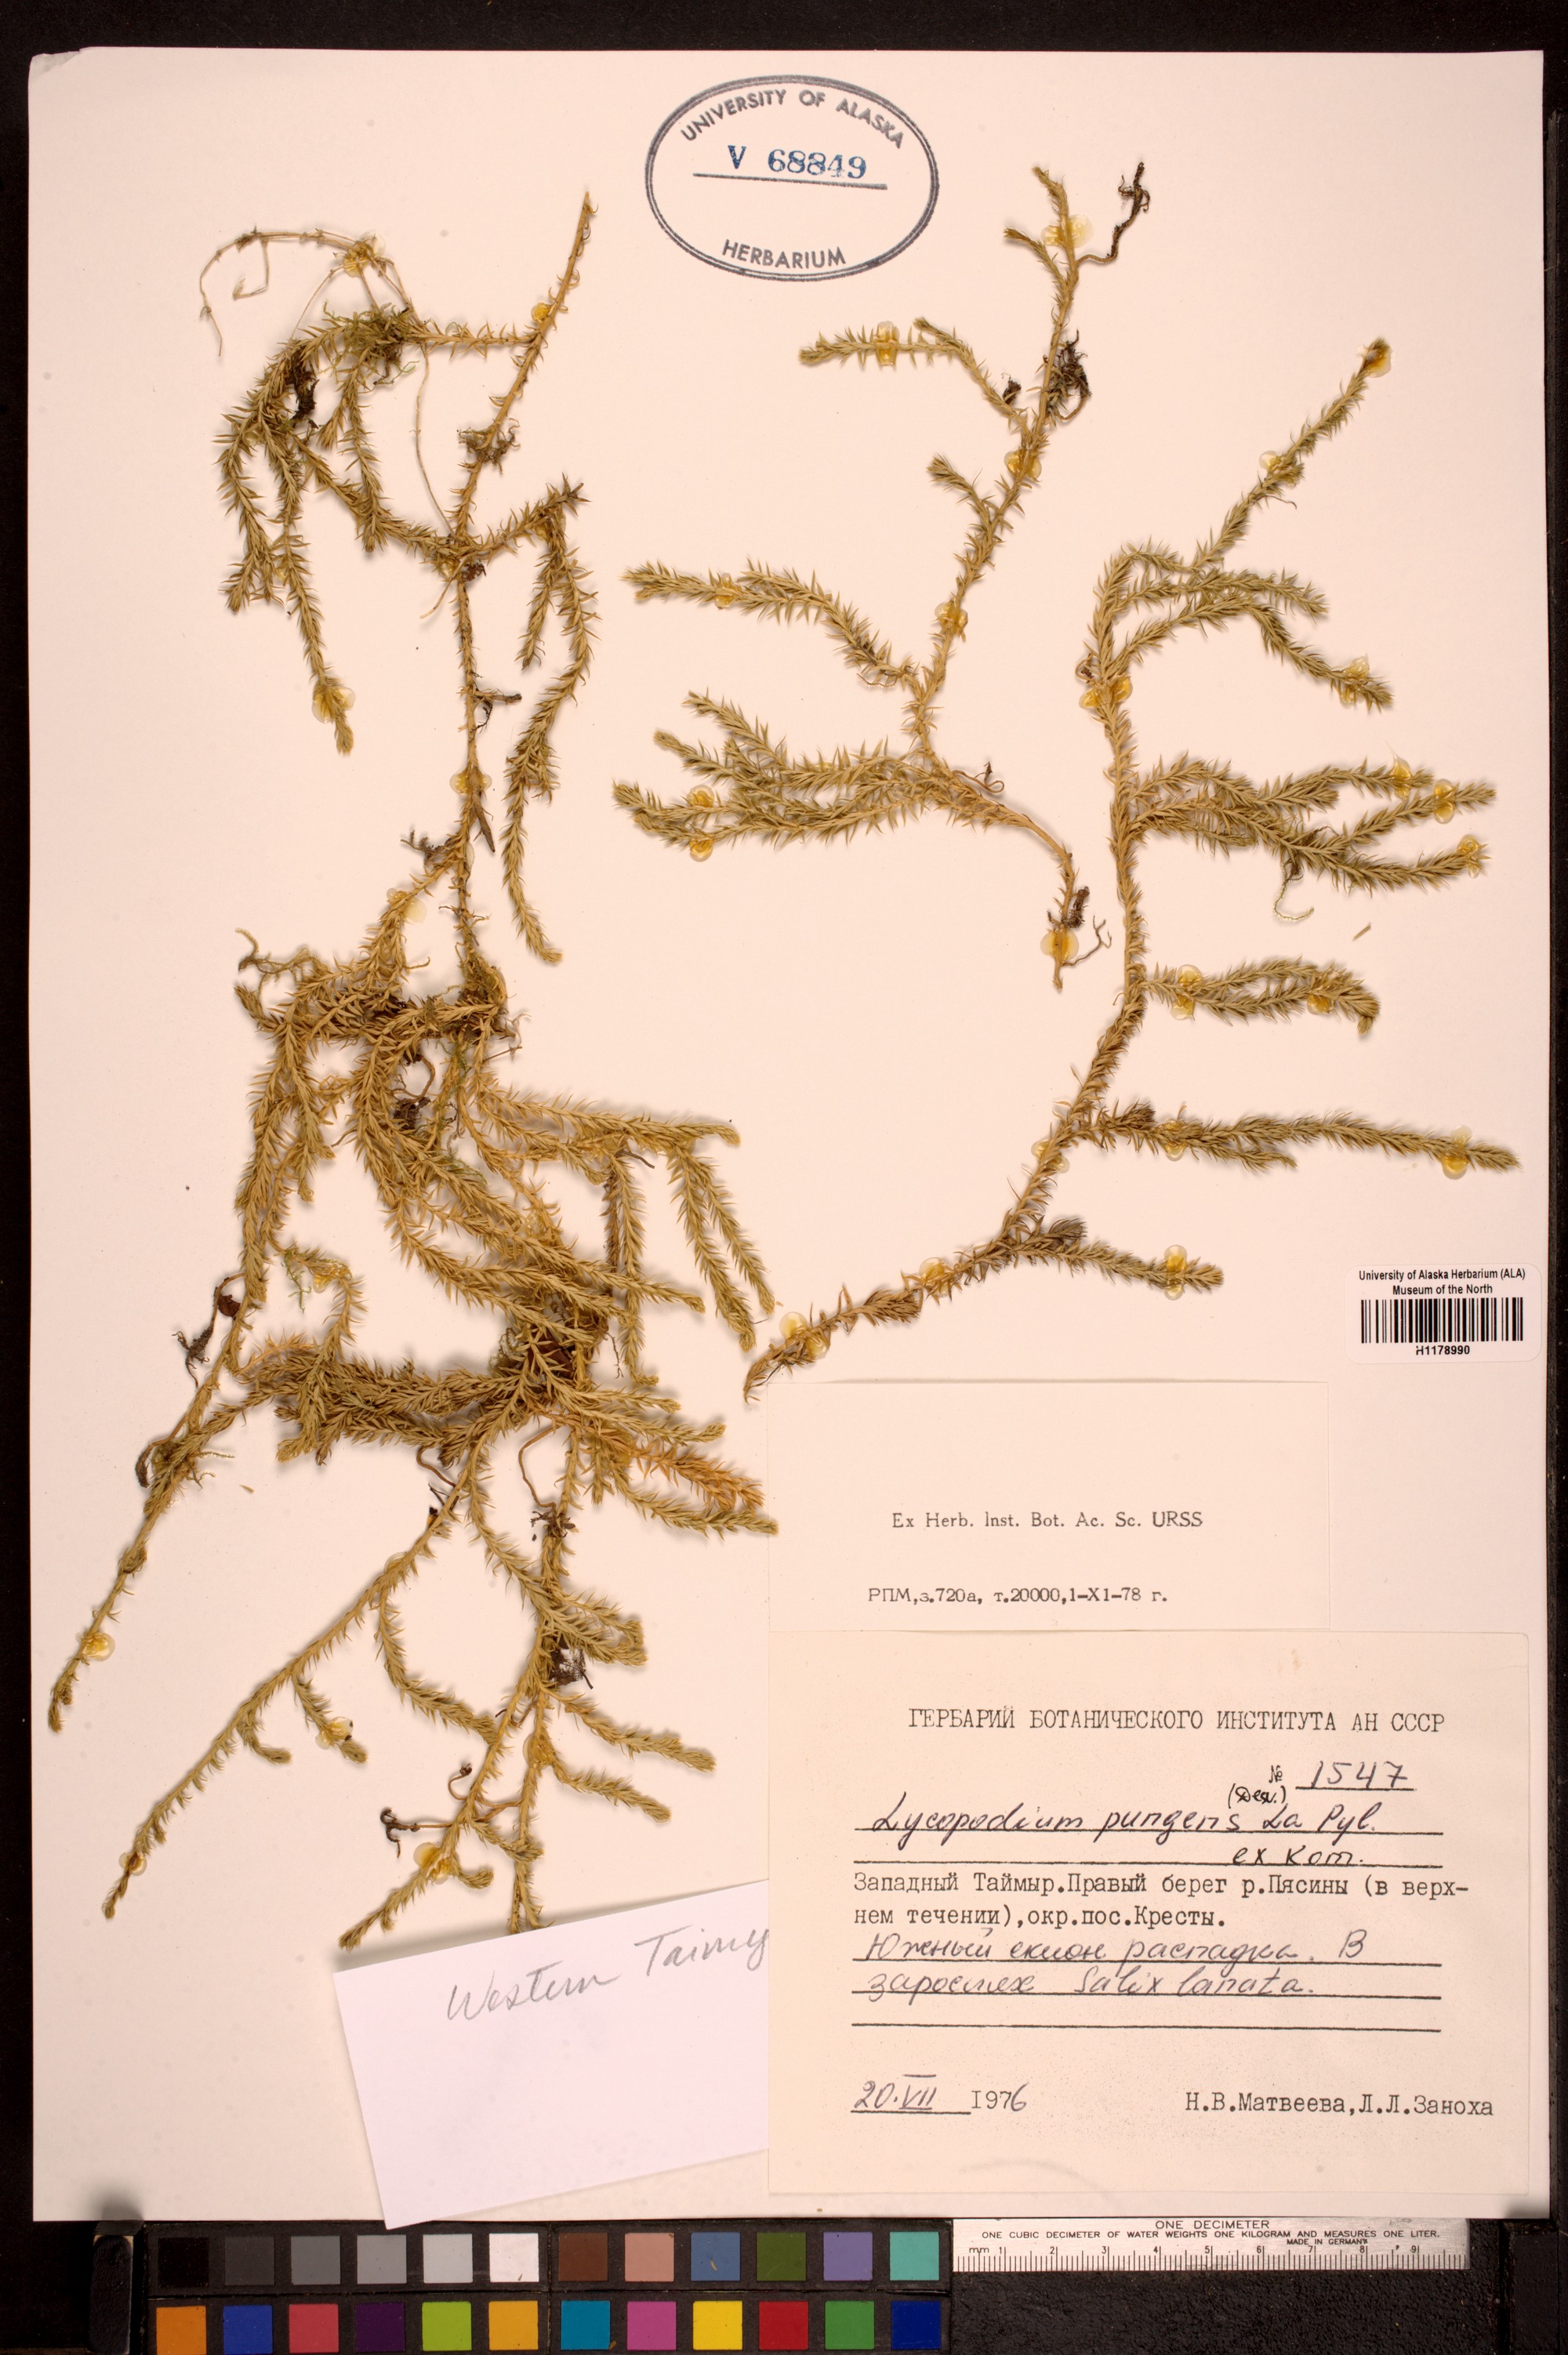 UNIVERSITY OF ALASKA
V 68849
HERBARIUM
University of Alaska Herbarium (ALA)
Museum of the North
H1178990
Ex Herb. Inst. Bot. Ac. Sc. URSS
РПМ,з.720а, т.20000,1-XI-78 г.
ГЕРБАРИЙ БОТАНИЧЕСКОГО ИНСТИТУТА АН СССР
№ 1547
(Desv.)
Lycopodium pungens La Pyl.
ex Kom.
Западный Таймыр.Правый берег р.Пясины (в верх-
нем течении),окр.пос.Кресты.
Южный склон распадка. В
зарослях Salix lanata.
20.VII 1976
Н.В.Матвеева,Л.Л.Заноха
Western Taimy
ONE DECIMETER
ONE CUBIC DECIMETER OF WATER WEIGHTS ONE KILOGRAM AND MEASURES ONE LITER.
MADE IN GERMANY
mm 1 2 3 4 5 6 7 8 9